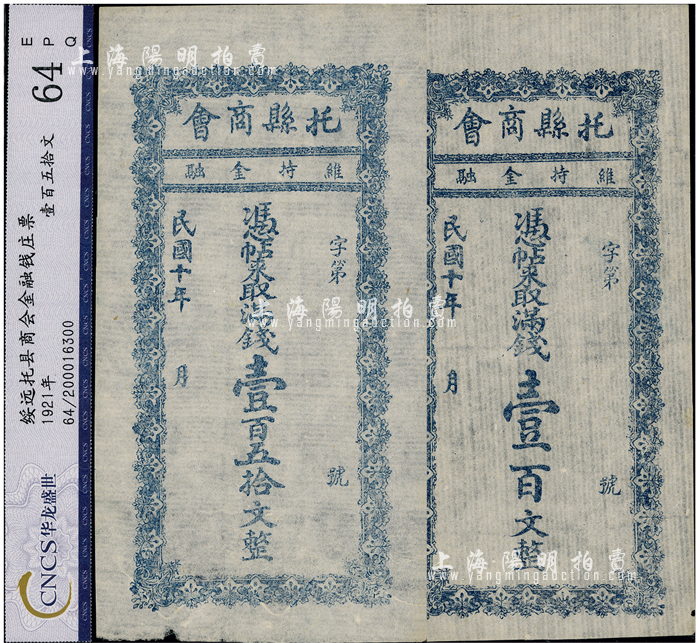 E P Q
64
绥远托县商会金融钱庄票
1921年
壹百五拾文
64/200016300
CNCS华龙盛世
CNCS
上海陽明拍賣
www.yangmingauction.com
托縣商會
維持金融
字第
號
憑帖來取滿錢壹百五拾文整
民國十年
月
托縣商會
維持金融
字第
號
憑帖來取滿錢壹百文整
民國十年
月
上海陽明拍賣
www.yangmingauction.com
上海陽明拍賣
www.yangmingauction.com